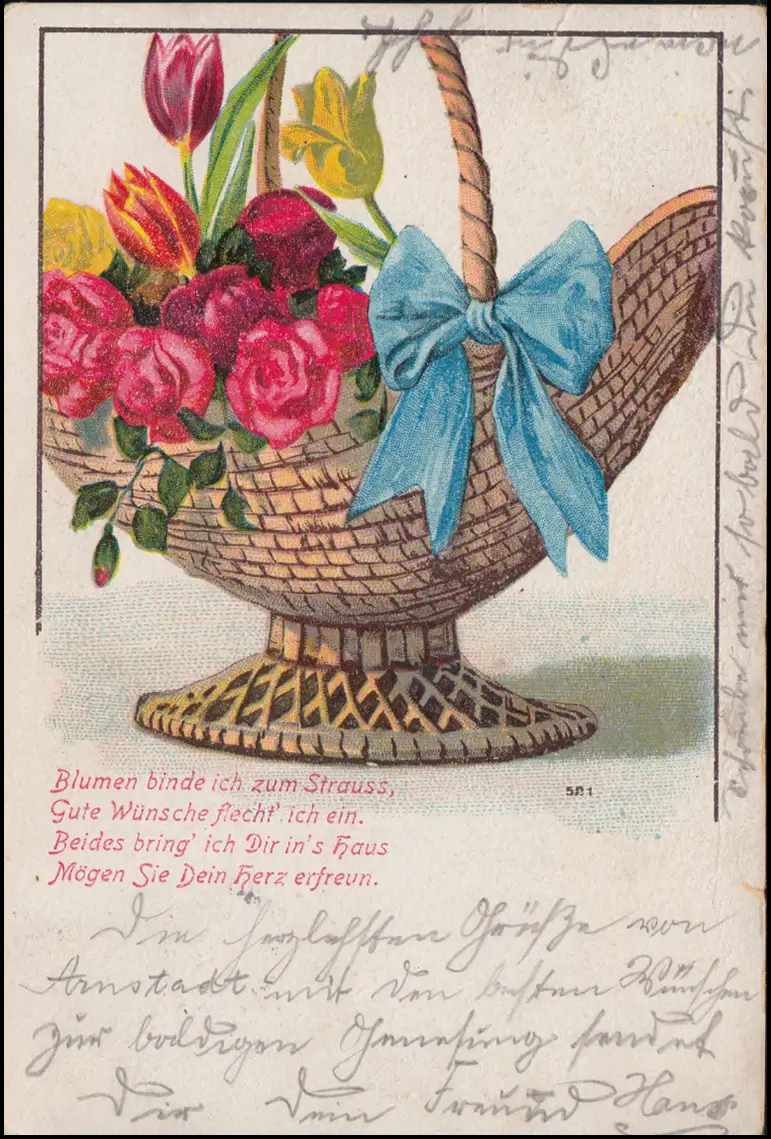 581
Blumen binde ich zum Strauss,
Gute Wünsche flecht' ich ein.
Beides bring' ich Dir in's Haus
Mögen Sie Dein Herz erfreun.
Die herzlichsten Grüße von
Arnstadt mit den besten Wünschen
zur baldigen Genesung sendet
Dir Dein Freund Hans
Schreibe mir so bald Du kannst.